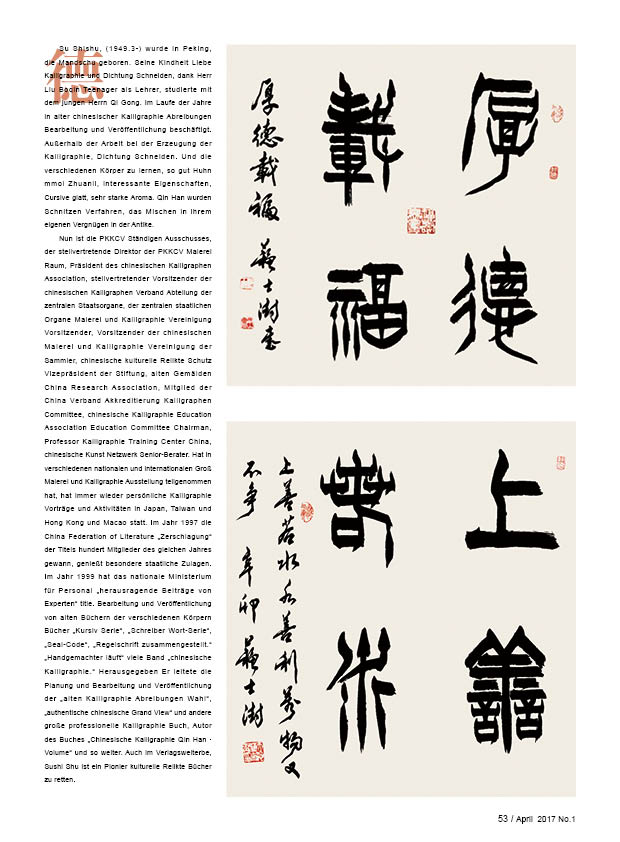 德
Su Shishu, (1949.3-) wurde in Peking,
die Mandschu geboren. Seine Kindheit Liebe
Kalligraphie und Dichtung Schneiden, dank Herr
Liu Bocin Teenager als Lehrer, studierte mit
dem jungen Herrn Qi Gong. Im Laufe der Jahre
in alter chinesischer Kalligraphie Abreibungen
Bearbeitung und Veröffentlichung beschäftigt.
Außerhalb der Arbeit bei der Erzeugung der
Kalligraphie, Dichtung Schneiden. Und die
verschiedenen Körper zu lernen, so gut Huhn
mmol Zhuanli, interessante Eigenschaften,
Cursive glatt, sehr starke Aroma. Qin Han wurden
Schnitzen Verfahren, das Mischen in Ihrem
eigenen Vergnügen in der Antike.
Nun ist die PKKCV Ständigen Ausschusses,
der stellvertretende Direktor der PKKCV Malerei
Raum, Präsident des chinesischen Kalligraphen
Association, stellvertretender Vorsitzender der
chinesischen Kalligraphen Verband Abteilung der
zentralen Staatsorgane, der zentralen staatlichen
Organe Malerei und Kalligraphie Vereinigung
Vorsitzender, Vorsitzender der chinesischen
Malerei und Kalligraphie Vereinigung der
Sammler, chinesische kulturelle Relikte Schutz
Vizepräsident der Stiftung, alten Gemälden
China Research Association, Mitglied der
China Verband Akkreditierung Kalligraphen
Committee, chinesische Kalligraphie Education
Association Education Committee Chairman,
Professor Kalligraphie Training Center China,
chinesische Kunst Netzwerk Senior-Berater. Hat in
verschiedenen nationalen und internationalen Groß
Malerei und Kalligraphie Ausstellung teilgenommen
hat, hat immer wieder persönliche Kalligraphie
Vorträge und Aktivitäten in Japan, Taiwan und
Hong Kong und Macao statt. Im Jahr 1997 die
China Federation of Literature „Zerschlagung“
der Titels hundert Mitglieder des gleichen Jahres
gewann, genießt besondere staatliche Zulagen.
Im Jahr 1999 hat das nationale Ministerium
für Personal „herausragende Beiträge von
Experten“ title. Bearbeitung und Veröffentlichung
von alten Büchern der verschiedenen Körpern
Bücher „Kursiv Serie“, „Schreiber Wort-Serie“,
„Seal-Code“, „Regelschrift zusammengestellt.“
„Handgemachter läuft“ viele Band „chinesische
Kalligraphie.“ Herausgegeben Er leitete die
Planung und Bearbeitung und Veröffentlichung
der „alten Kalligraphie Abreibungen Wahl“,
„authentische chinesische Grand View“ und andere
große professionelle Kalligraphie Buch, Autor
des Buches „Chinesische Kalligraphie Qin Han ·
Volume“ und so weiter. Auch im Verlagsweiterbe,
Sushi Shu ist ein Pionier kulturelle Relikte Bücher
zu retten.
厚德
載福
厚德載福
蘇士澍書
上善
若水
上善若水水善利萬物又
不争 辛卯 蘇士澍
53 / April 2017 No.1